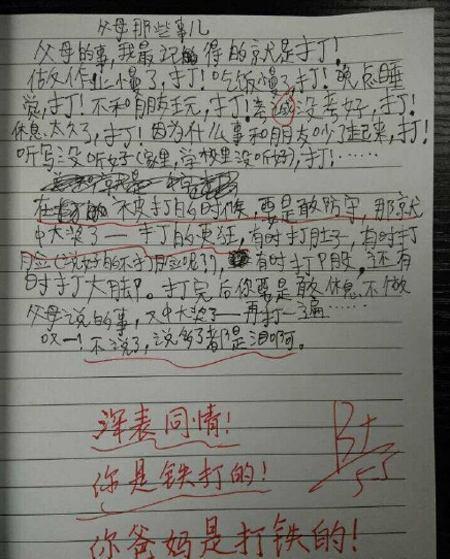 父母那些事儿
父母的事,我最记的得的就是打!
做作业慢了,打!吃饭慢了,打!晚点睡
觉,打!不和朋友玩,打!考试没考好,打!
休息太久了,打!因为什么事和朋友吵了起来,打!
听写没听好(家里,学校里没听好),打!……
在 不史打的时候,要是敢防守,那就
中大奖了——打的更狂,有时打肚子,有时打
月佥(说好的不打月佥呢?!),有时打P股,还有
时打大月退。打完后你要是敢休息不做
父母说的事,又中大奖了——再打一遍……
哎—!不说了,说多了都是泪啊。
深表同情!
B+
你是铁打的!
5-3
你爸妈是打铁的!